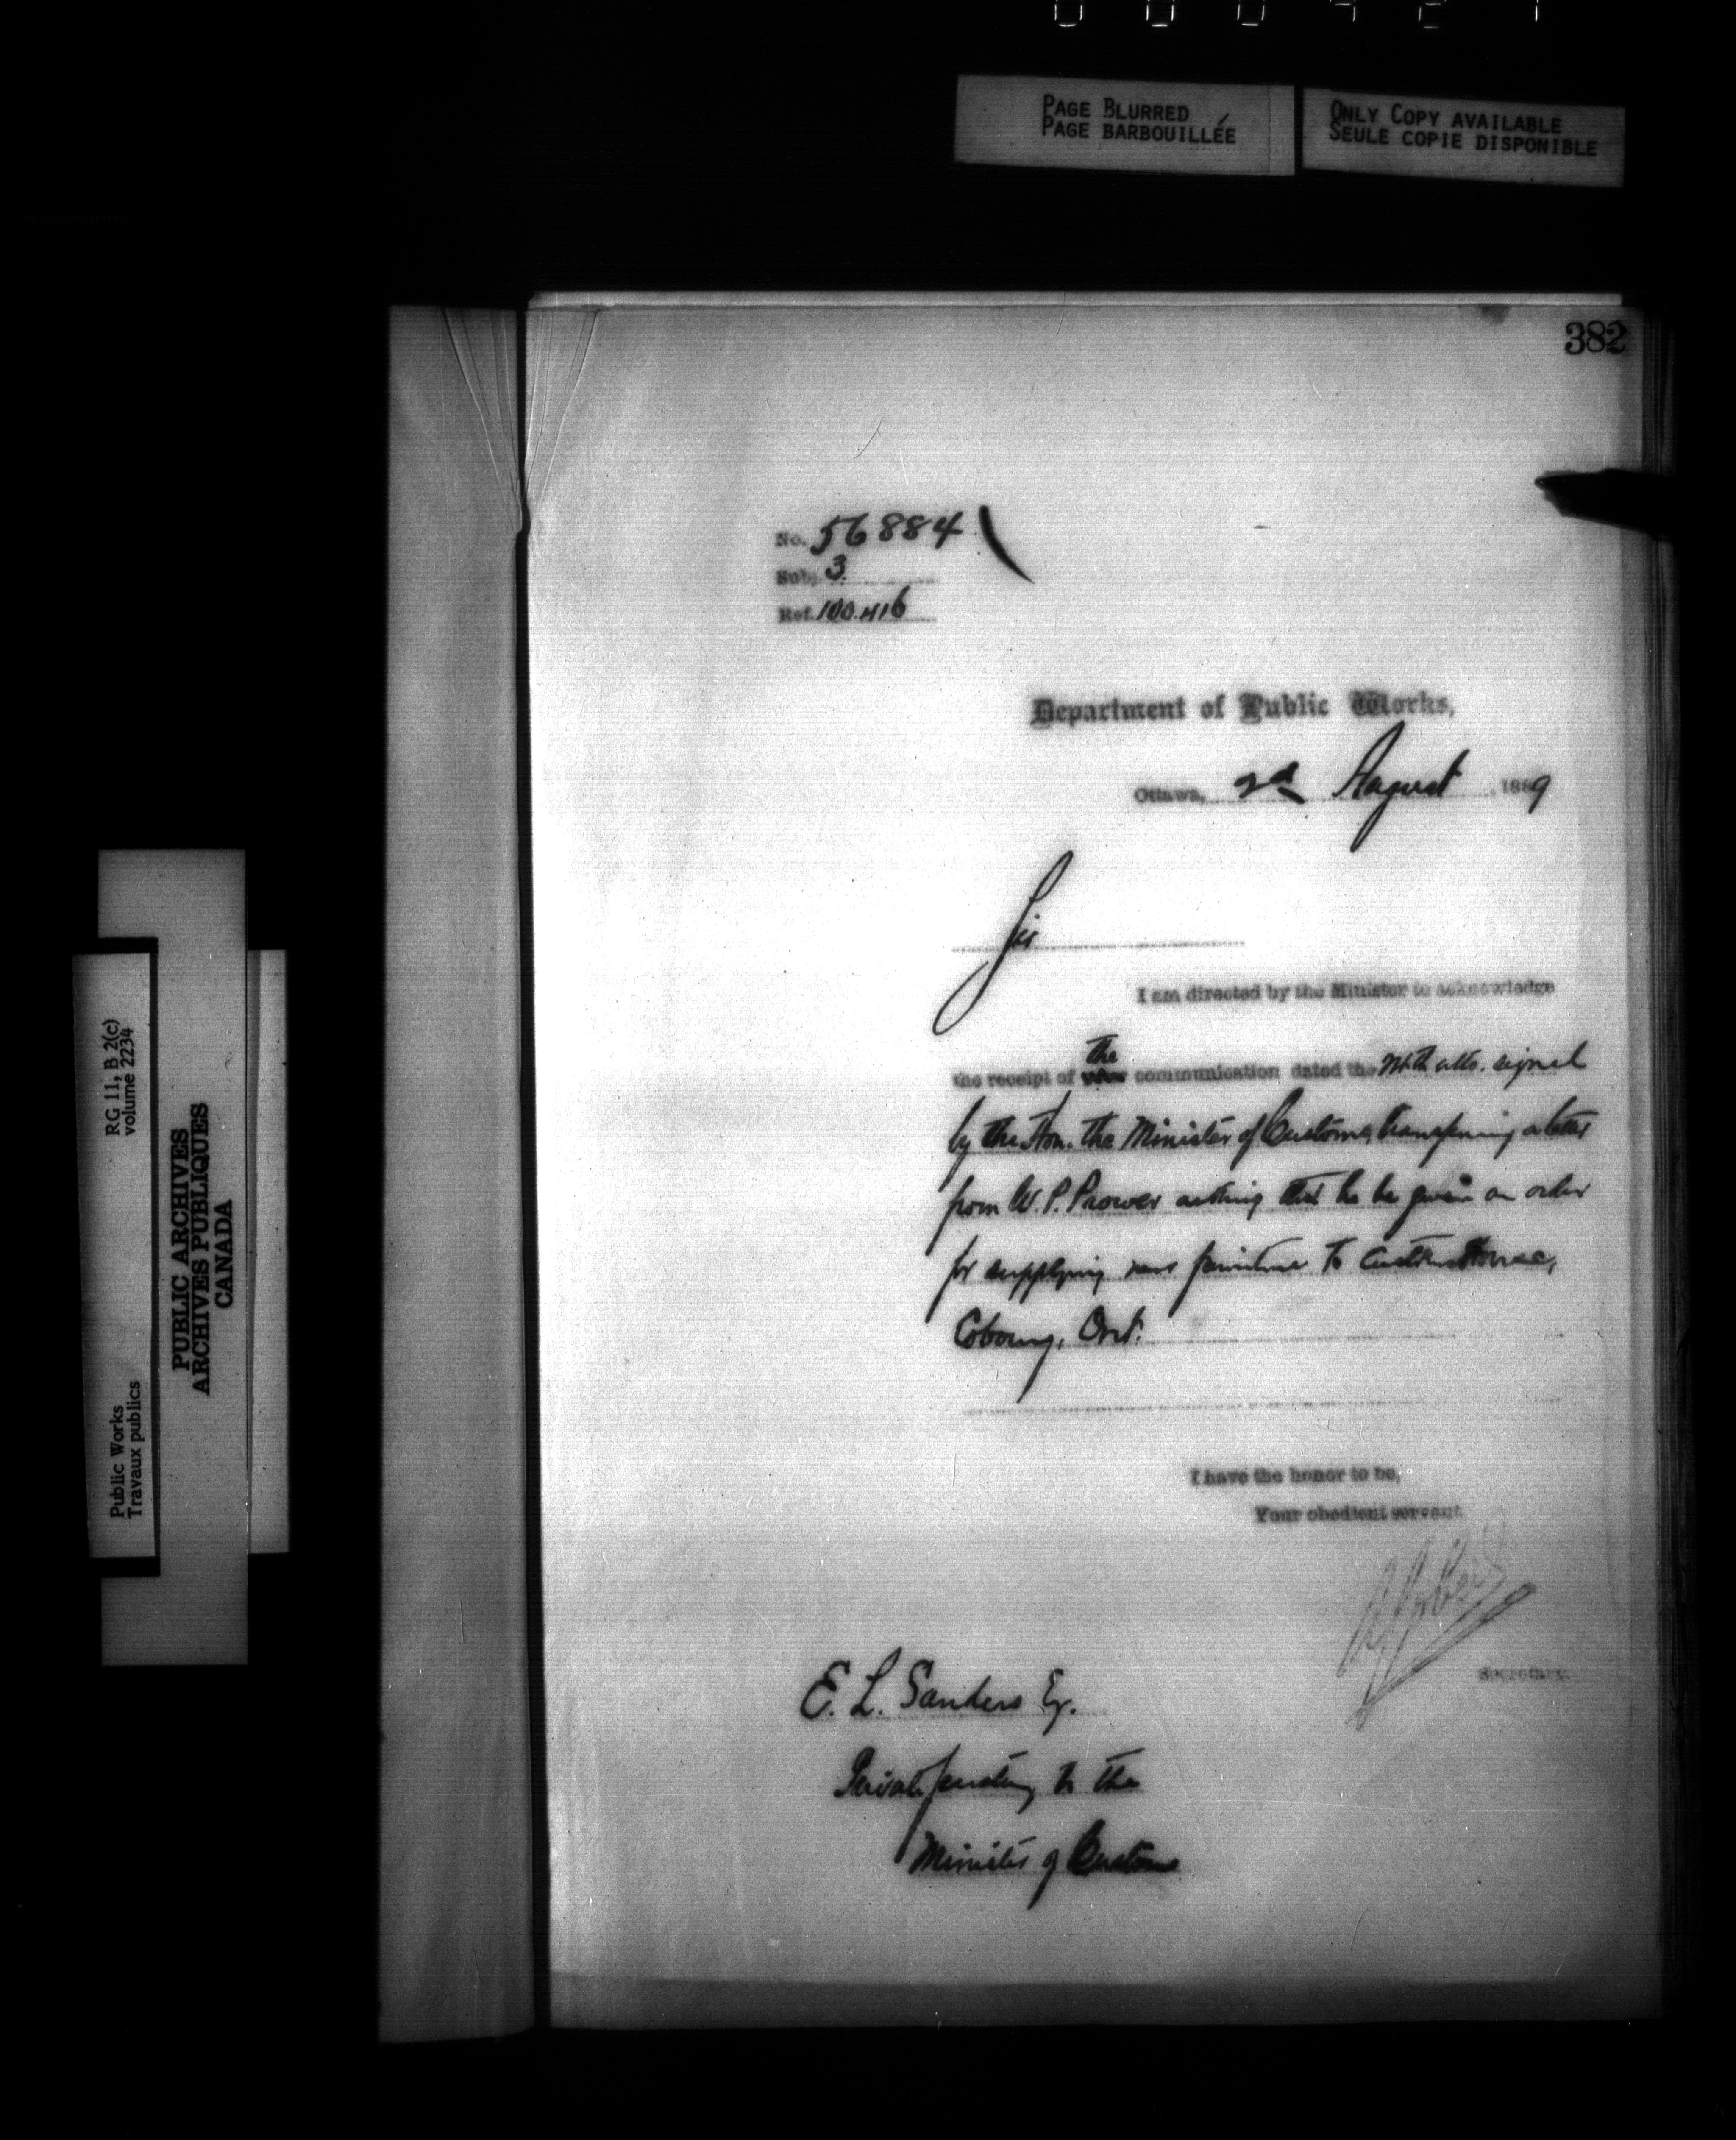 PAGE BLURRED
PAGE BARBOUILLÉE
ONLY COPY AVAILABLE
SEULE COPIE DISPONIBLE
382
No. 56884
Subj. 3
Ref. 100.416
Department of Public Works,
Ottawa, 2d August 1889
Sir
I am directed by the Minister to acknowledge
the
the receipt of your communication dated the ulto. signed
by the Hon. the Minister of Customs, transferring a letter
from W. P. Prower asking that he be given an order
for supplying new furniture to Custom House,
Cobourg, Ont.
I have the honor to be,
Your obedient servant
Secretary.
E. L. Sanders Esq.
Private Secretary to the
Minister of Customs
RG 11, B 2(c)
volume 2234
Public Works
Travaux publics
PUBLIC ARCHIVES
ARCHIVES PUBLIQUES
CANADA